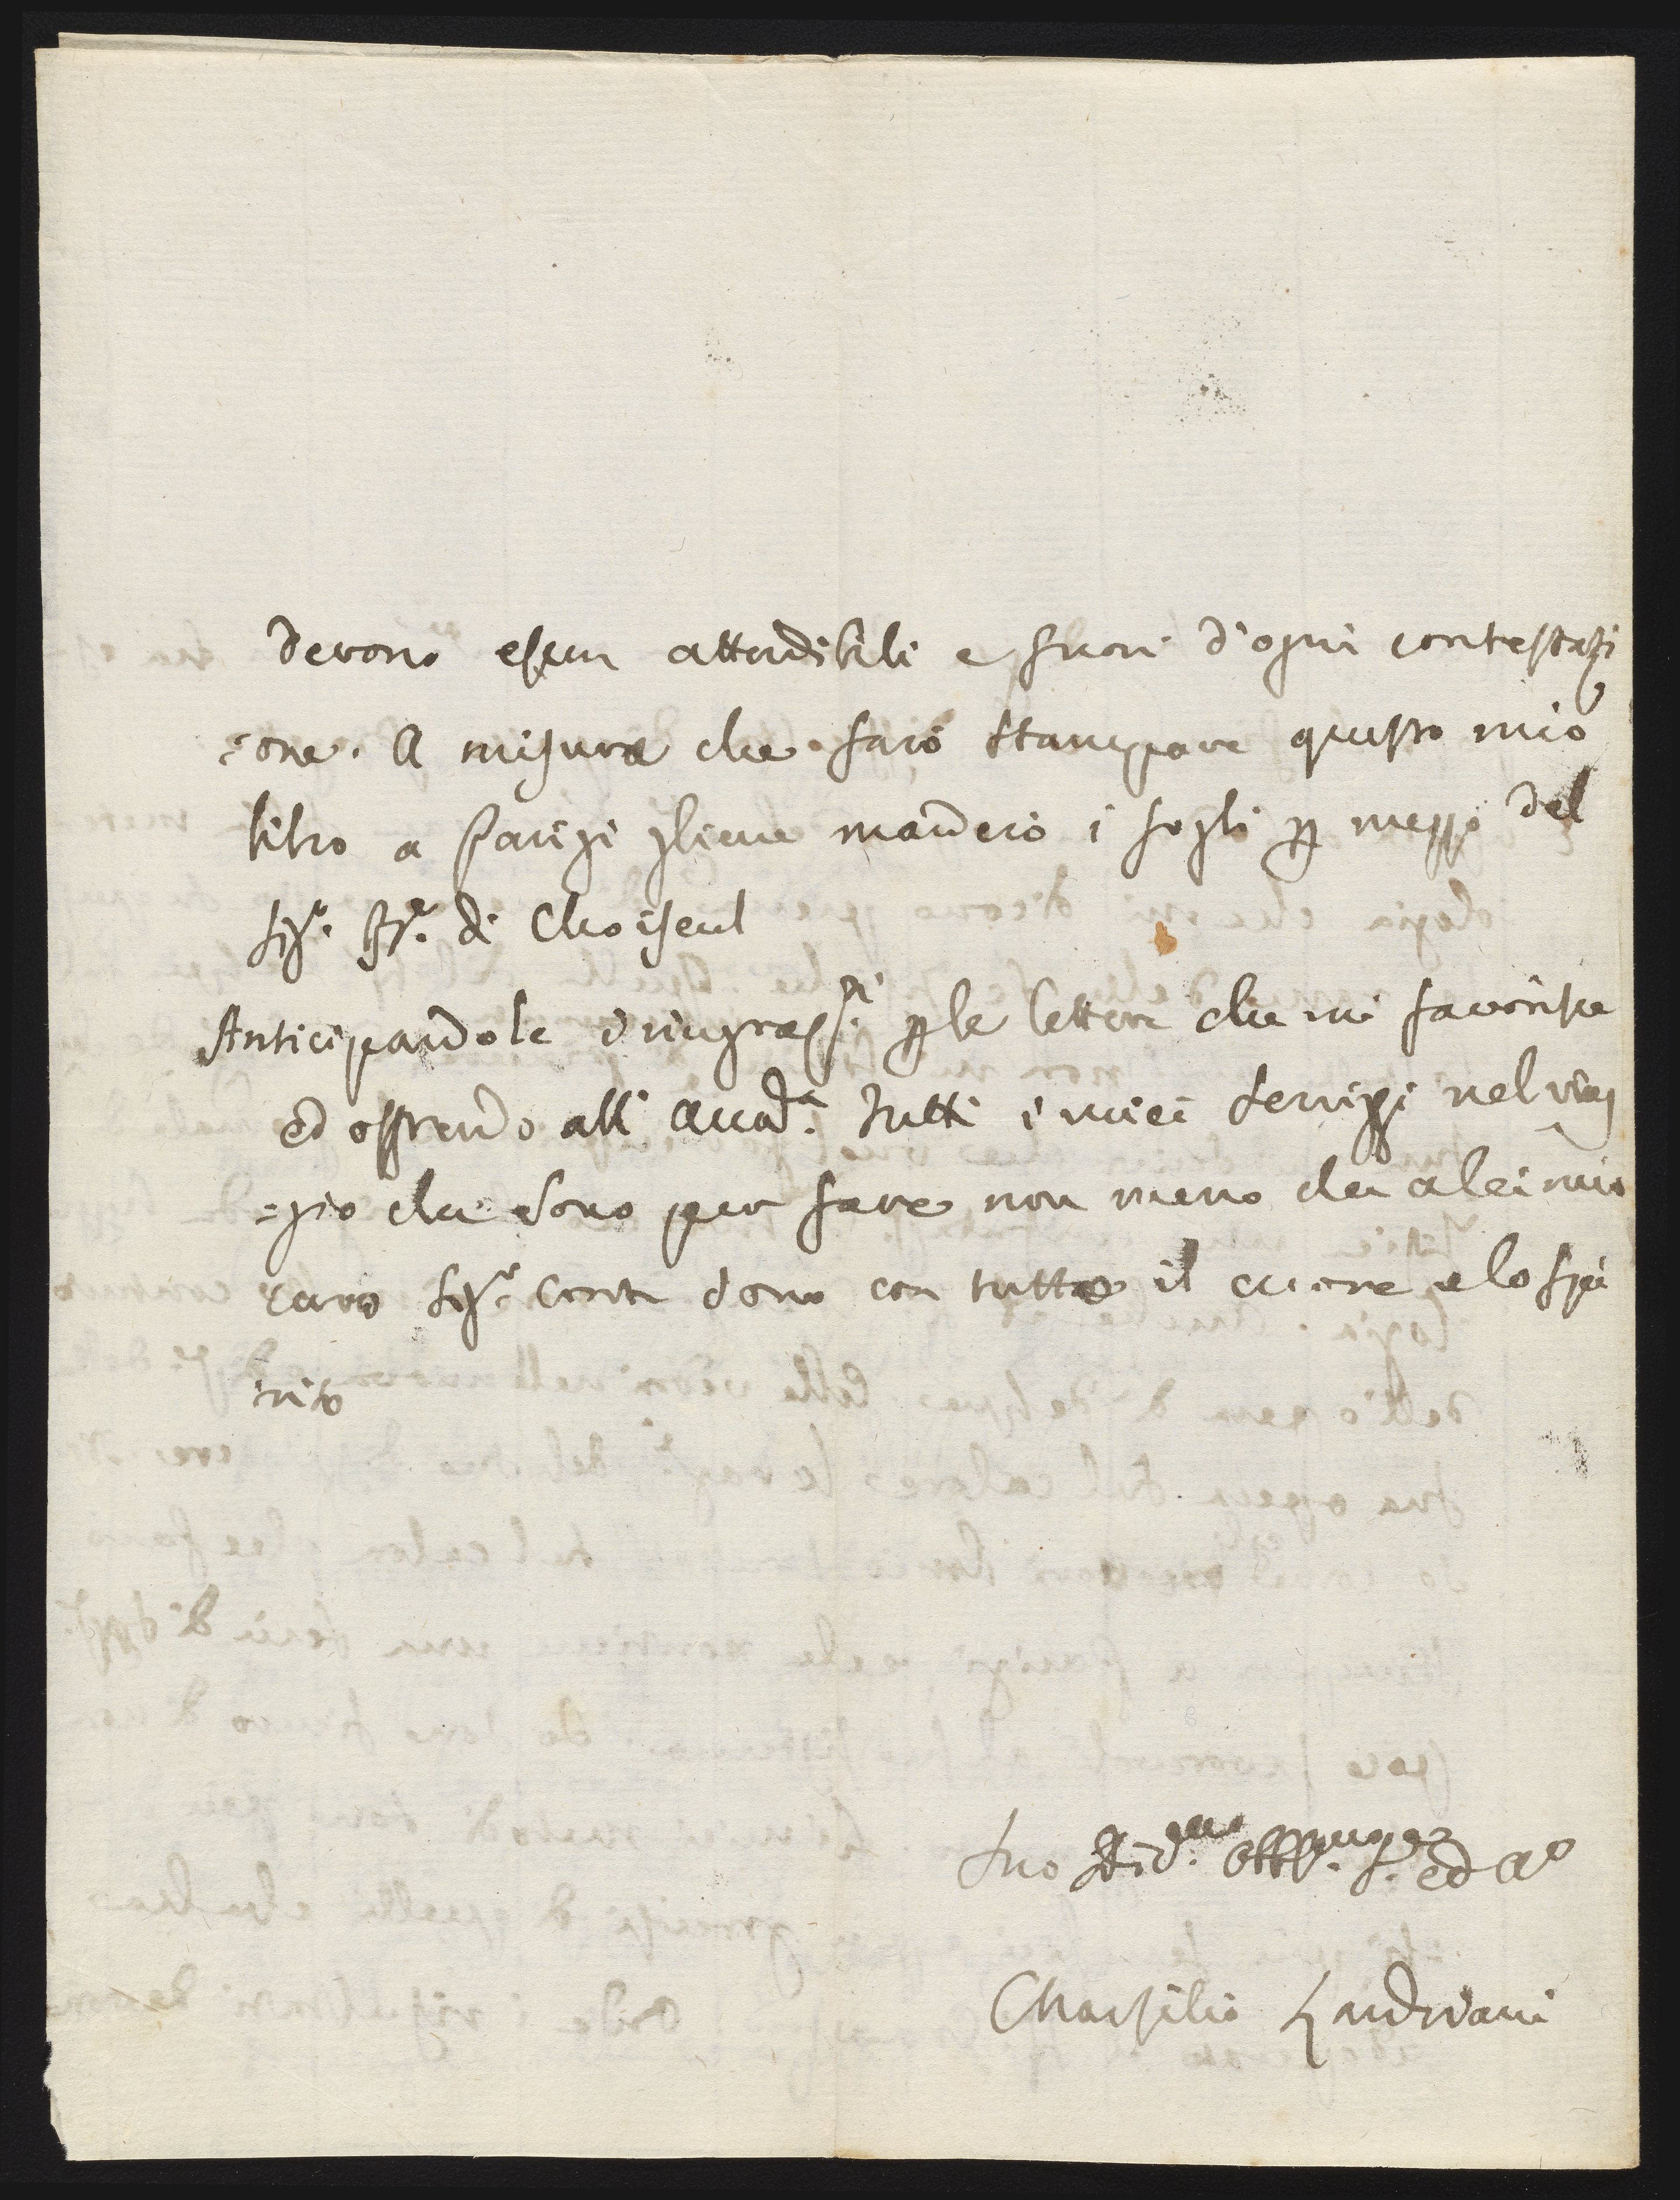 devono essere attendibili e fuori d'ogni contestazi
=one. A misura che farò stampare questo mio
libro a Parigi gliene manderò i fogli p mezzo del
Sigr. Bre. di Choiseul
Anticipandole i ringrazti. p le lettere che mi favorisce
ed offrendo all' Accada. tutti i miei servizi nel viag
=gio che sono per fare non meno che a lei mio
caro Sigr. Conte sono con tutto il cuore e lo spi
rito
Suo Divmo. Obblmo. S. ed Ao
Marsilio Landriani